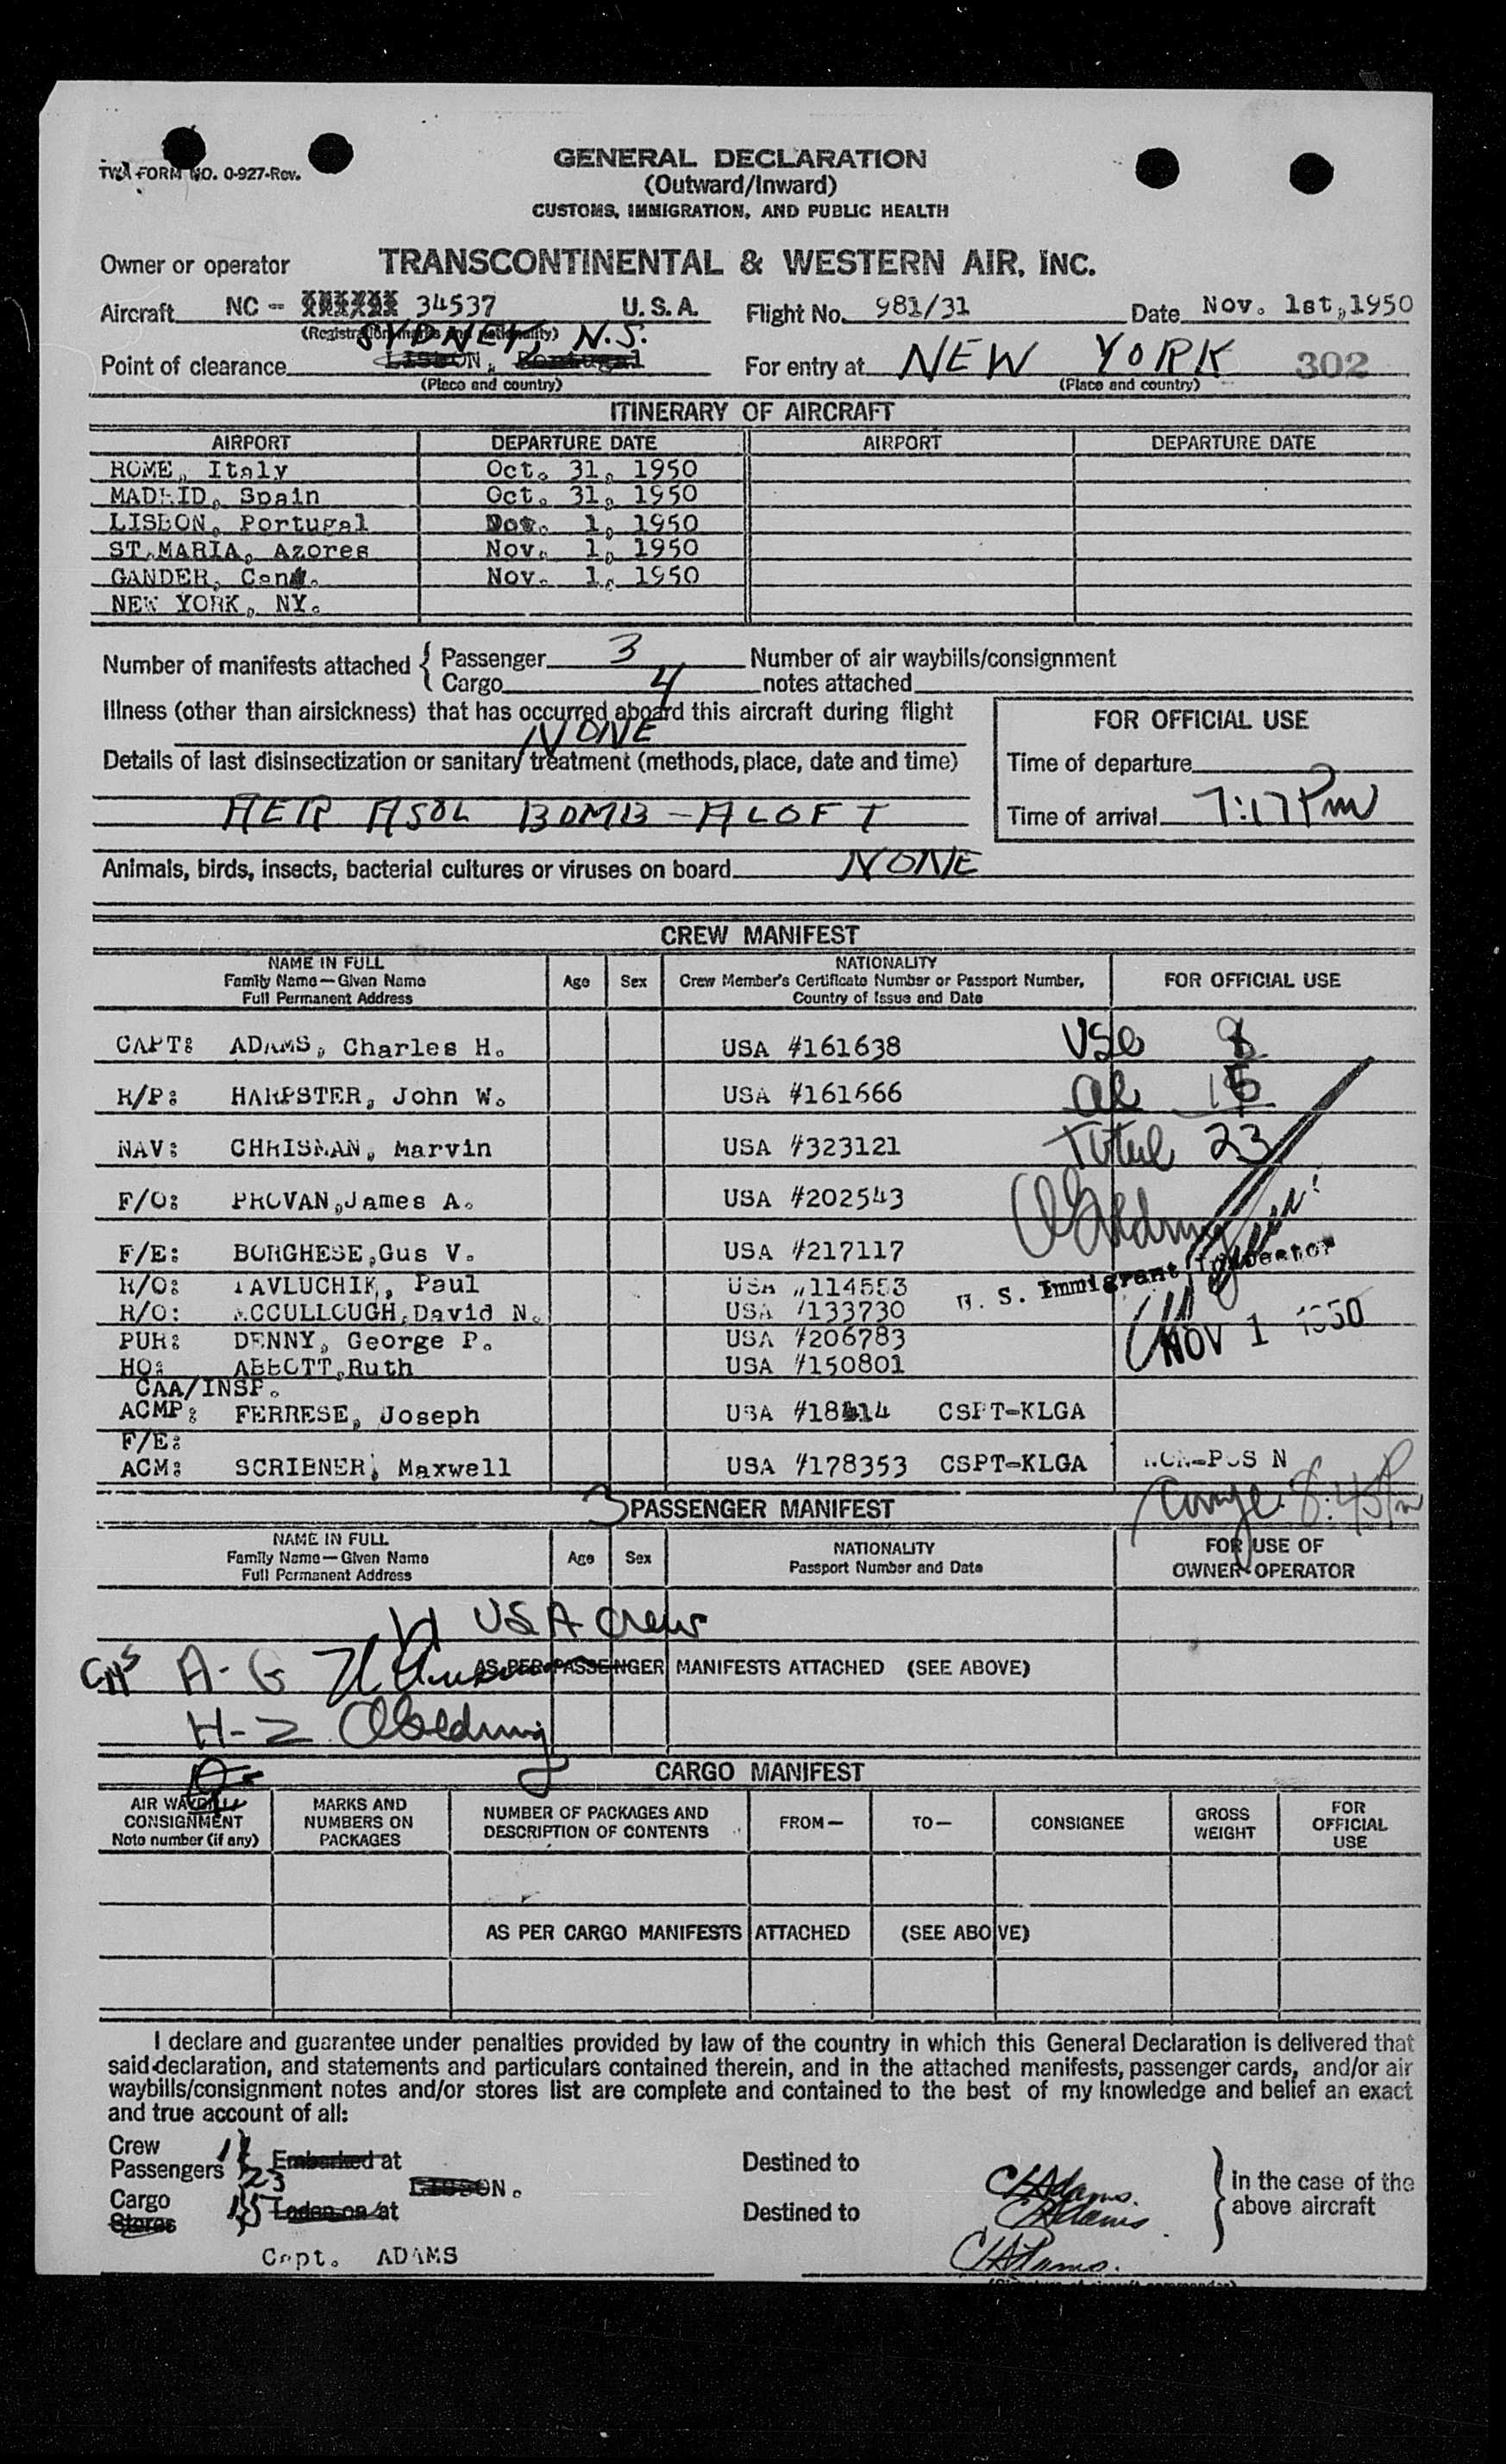 TWA FORM NO. 0-927-Rev.
GENERAL DECLARATION
(Outward/Inward)
CUSTOMS, IMMIGRATION, AND PUBLIC HEALTH
Owner or operator TRANSCONTINENTAL & WESTERN AIR, INC.
Aircraft NC - 34537 U.S.A. Flight No. 981/31 Date Nov. 1st,1950
(Registration marks and nationality)
SYDNEY, N.S.
Point of clearance LISBON, Portugal For entry at NEW YORK 302
(Place and country) (Place and country)
ITINERARY OF AIRCRAFT
AIRPORT DEPARTURE DATE AIRPORT DEPARTURE DATE
ROME, Italy Oct. 31, 1950
MADRID, Spain Oct. 31, 1950
LISBON, Portugal Nov. 1, 1950
ST.MARIA, Azores Nov. 1, 1950
GANDER, Can. Nov. 1, 1950
NEW YORK, NY.
Number of manifests attached { Passenger 3 Number of air waybills/consignment
Cargo 4 notes attached
Illness (other than airsickness) that has occurred aboard this aircraft during flight
NONE
FOR OFFICIAL USE
Details of last disinsectization or sanitary treatment (methods, place, date and time)
Time of departure
AER ASOL BOMB - ALOFT
Time of arrival 7:17 Pm
Animals, birds, insects, bacterial cultures or viruses on board NONE
CREW MANIFEST
NAME IN FULL
Family Name—Given Name
Full Permanent Address
Age Sex
NATIONALITY
Crew Member's Certificate Number or Passport Number,
Country of Issue and Date
FOR OFFICIAL USE
CAPT: ADAMS, Charles H. USA #161638 USC 8
R/P: HARPSTER, John W. USA #161666 al 15
NAV: CHRISMAN, Marvin USA #323121 Total 23
F/O: PROVAN,James A. USA #202543
F/E: BORGHESE,Gus V. USA #217117
R/O: PAVLUCHIK, Paul USA #114553
U. S. Immigrant Inspector
R/O: MCCULLOUGH,David N. USA #133730
PUR: DENNY, George P. USA #206783
NOV 1 1950
HO: ABBOTT,Ruth USA #150801
CAA/INSP.
ACMP: FERRESE, Joseph USA CSPT-KLGA
F/E:
ACM: SCRIBNER, Maxwell USA #178353 CSPT-KLGA NON-POS N
8:45 Pm
3 PASSENGER MANIFEST
NAME IN FULL
Family Name—Given Name
Full Permanent Address
Age Sex
NATIONALITY
Passport Number and Date
FOR USE OF
OWNER-OPERATOR
11 USA Crew
A-G
AS PER PASSENGER MANIFESTS ATTACHED (SEE ABOVE)
H-Z
CARGO MANIFEST
AIR WAYBILL
CONSIGNMENT
Note number (if any)
MARKS AND
NUMBERS ON
PACKAGES
NUMBER OF PACKAGES AND
DESCRIPTION OF CONTENTS
FROM—
TO—
CONSIGNEE
GROSS
WEIGHT
FOR
OFFICIAL
USE
AS PER CARGO MANIFESTS ATTACHED (SEE ABOVE)
I declare and guarantee under penalties provided by law of the country in which this General Declaration is delivered that
said declaration, and statements and particulars contained therein, and in the attached manifests, passenger cards, and/or air
waybills/consignment notes and/or stores list are complete and contained to the best of my knowledge and belief an exact
and true account of all:
Crew 11 Embarked at Destined to
Passengers 23
LISBON.
Cargo Laden on at Destined to
Stores
CHAdams.
CHAdams
} In the case of the
above aircraft
Capt. ADAMS
CHAdams.